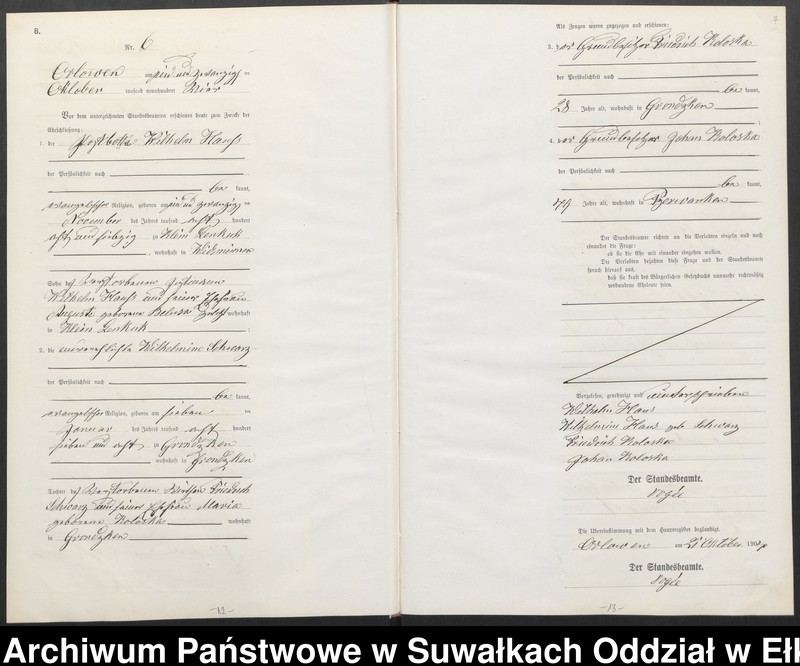 8.
Nr. 6
Orlowen am ein und zwanzigsten
Oktober tausend neunhundert Vier
Vor dem unterzeichneten Standesbeamten erschienen heute zum Zwecke der
Eheschließung:
1. der Postbote Wilhelm Hauß
der Persönlichkeit nach
be kannt,
evangelischer Religion, geboren am ein und zwanzigsten
November des Jahres tausend acht hundert
acht und siebzig in Klein Lenkuk
, wohnhaft in Widminnen
Sohn des verstorbenen
Wilhelm Hauß und seiner Ehefrau
Auguste geborene wohnhaft
in Klein Lenkuk ;
2. die unverehelichte Wilhelmine Schwarz
der Persönlichkeit nach
be kannt,
evangelischer Religion, geboren am sieben ten
Januar des Jahres tausend acht hundert
sieben und acht in Grondzken
wohnhaft in Grondzken
Tochter des verstorbenen Wirthen Friedrich
Schwarz und seiner Ehefrau Maria
geborene Koloska wohnhaft
in Grondzken
-12-
7
Als Zeugen waren zugezogen und erschienen:
3. der Grundbesitzer Friedrich Koloska
der Persönlichkeit nach
be kannt,
28 Jahre alt, wohnhaft in Grondzken
;
4. der Grundbesitzer Johan Koloska
der Persönlichkeit nach
be kannt,
49 Jahre alt, wohnhaft in
Der Standesbeamte richtete an die Verlobten einzeln und nach
einander die Frage:
ob sie die Ehe mit einander eingehen wollen.
Die Verlobten bejahten diese Frage und der Standesbeamte
sprach hierauf aus,
daß sie kraft des Bürgerlichen Gesetzbuchs nunmehr rechtmäßig
verbundene Eheleute seien.
Vorgelesen, genehmigt und unterschrieben
Wilhelm Haus
Wilhelmine Haus geb Schwarz
Friedrich Koloska
Johan Koloska
Der Standesbeamte.
Die Übereinstimmung mit dem Hauptregister beglaubigt.
Orlowen am 21 Oktober 1904
Der Standesbeamte.
-13-
Archiwum Państwowe w Suwałkach Oddział w Ełk